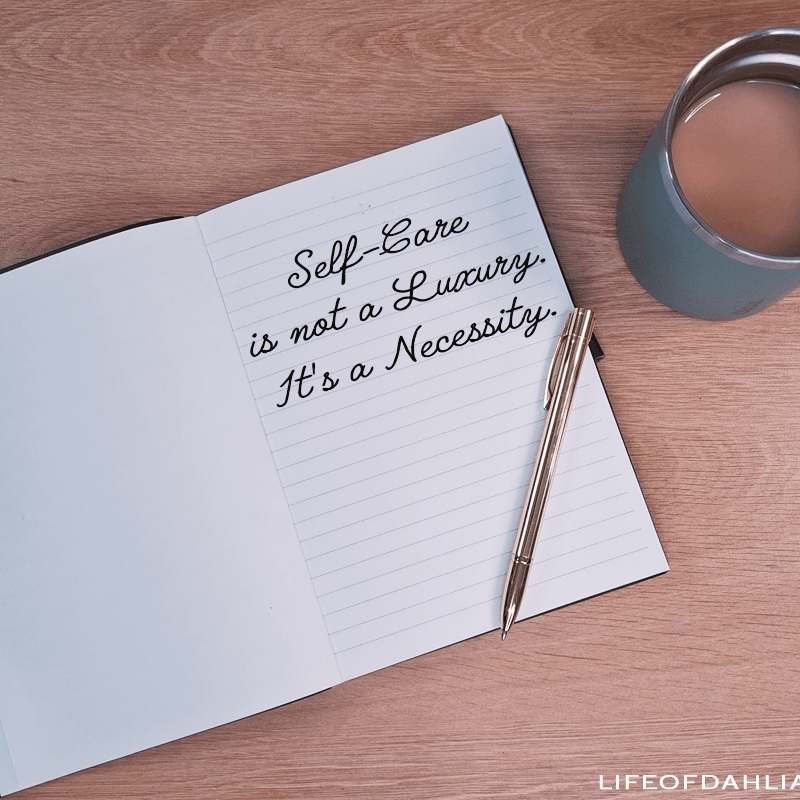 Self-Care
is not a Luxury.
It's a Necessity.
LIFEOFDAHLIA